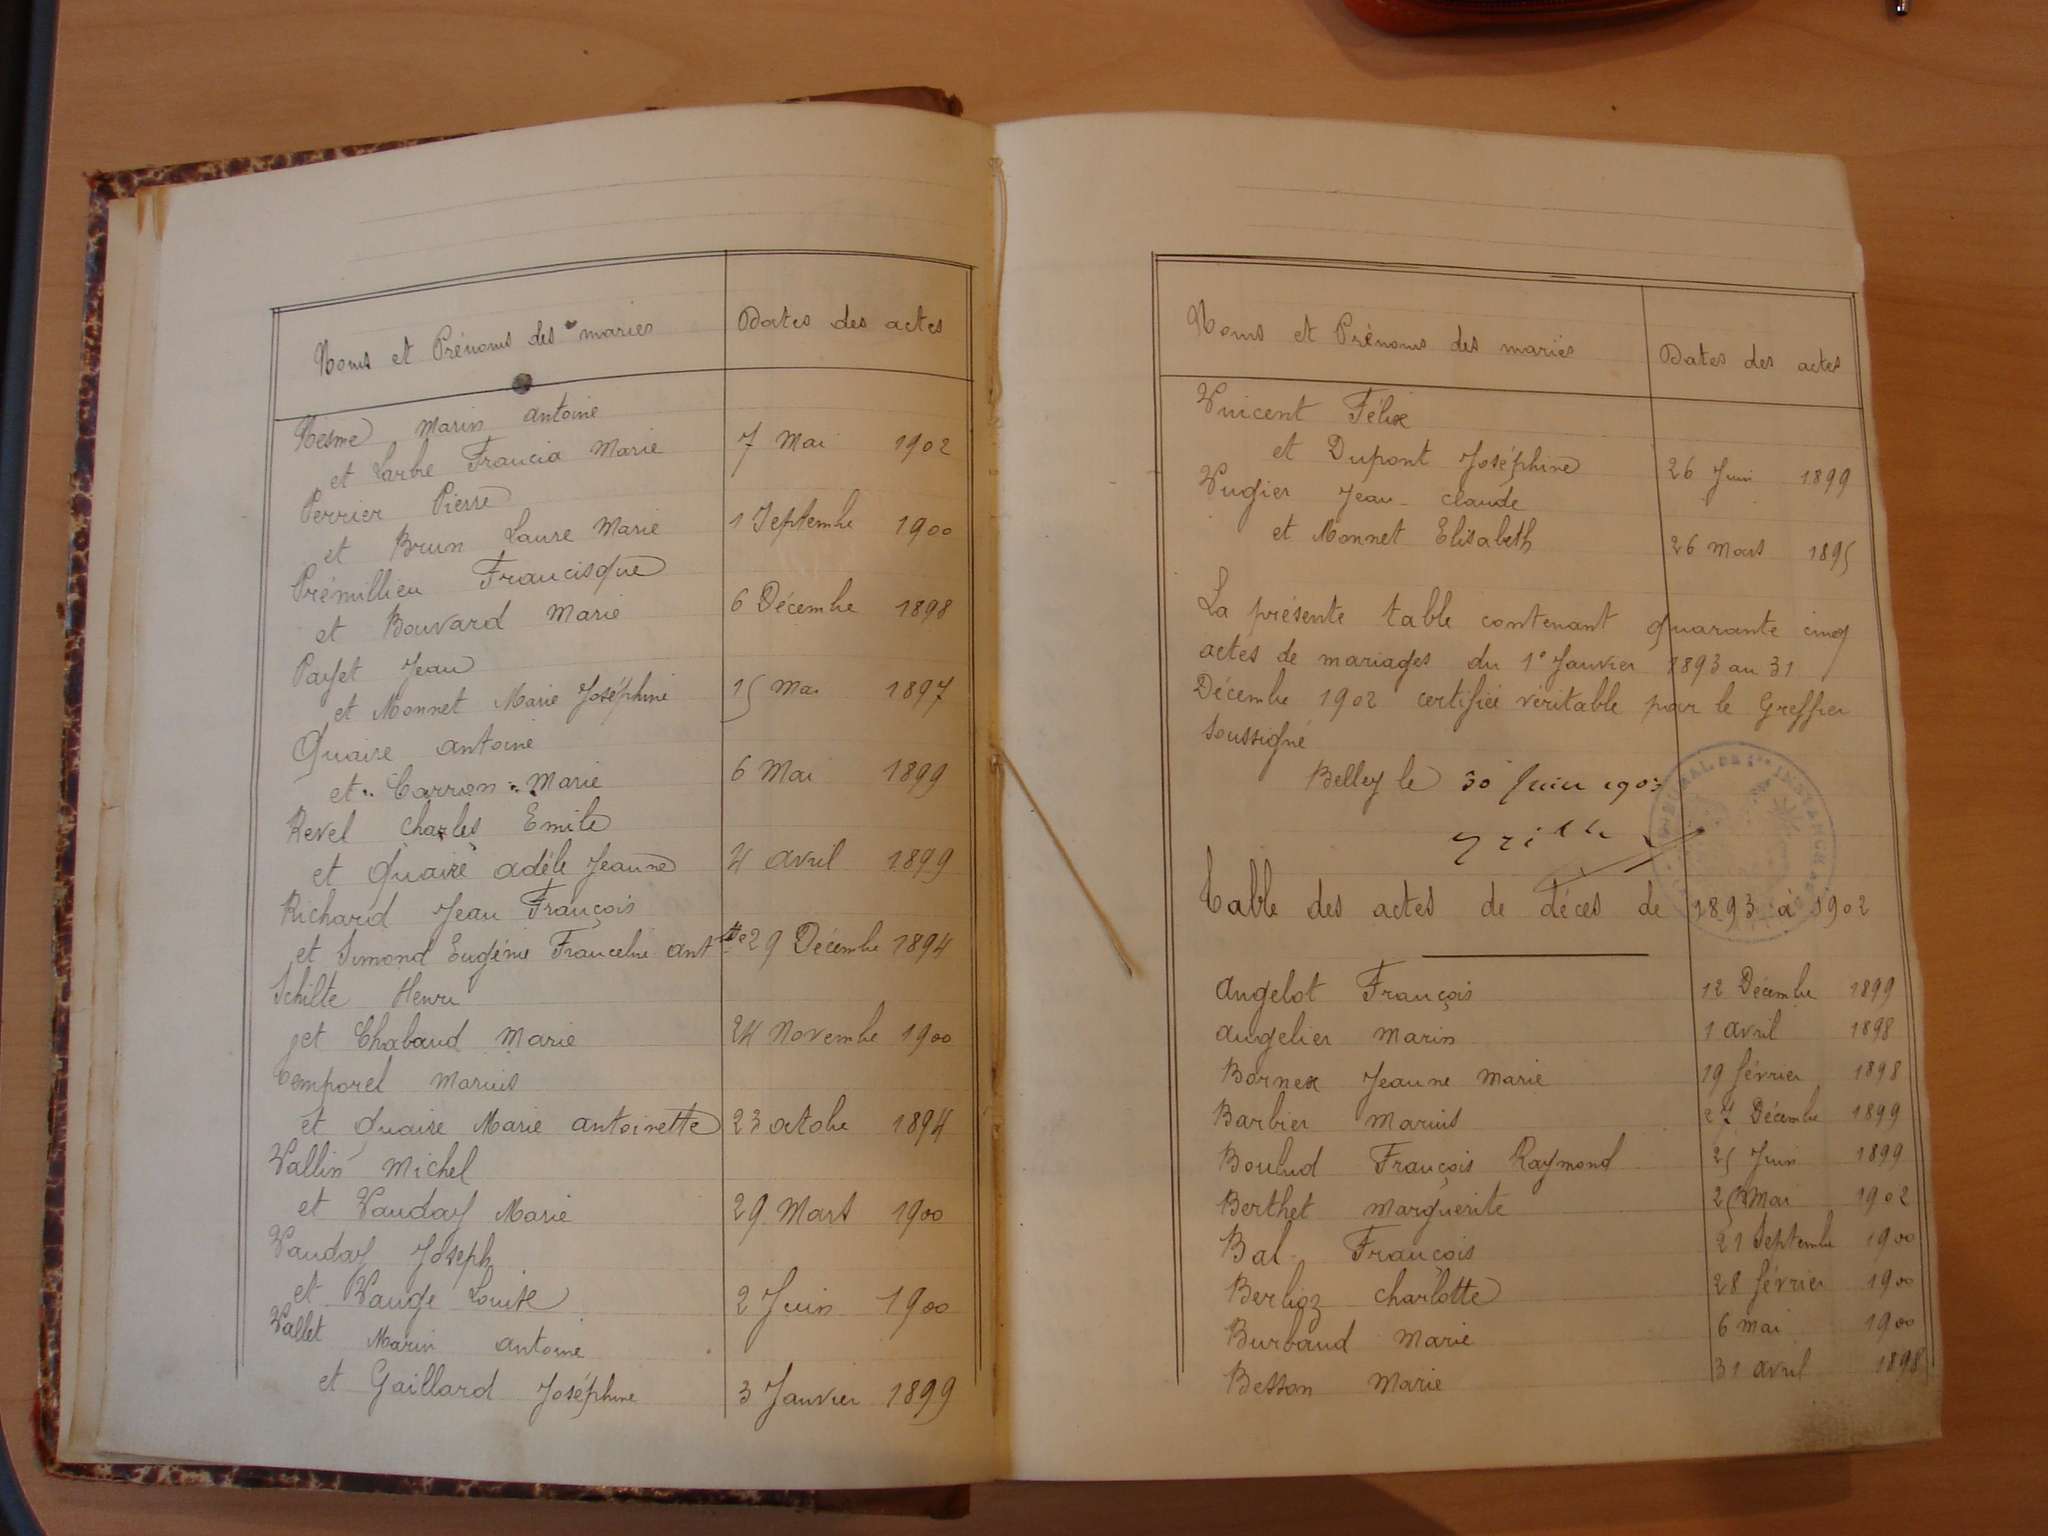 Noms et Prénoms des mariés
Dates des actes
Nesme Marin antoine
et Larbe Francia Marie 7 Mai 1902
Perrier Pierre
et Brun Laure Marie 1 Septembre 1900
Prémillieu Francisque
et Bouvard Marie 6 Décembre 1898
Payet Jean
et Monnet Marie Joséphine 15 Mai 1897
Quaire antoine
et Carrion Marie 6 Mai 1899
Revel Charles Emile
et Quaire adèle Jeanne 4 avril 1899
Richard Jean François
et Simond Eugénie Franceline antte 29 Décembre 1894
Schilte Henri
et Chabaud Marie 24 Novembre 1900
Temporel Marius
et Quaire Marie antoinette 23 octobre 1894
Vallin Michel
et Vauday Marie 29 Mars 1900
Vauday Joseph
et Vauge Louise 2 Juin 1900
Vallet Marin antoine
et Gaillard Joséphine 3 Janvier 1899
Noms et Prénoms des mariés
Dates des actes
Vuicent Félix
et Dupont Joséphine 26 Juin 1899
Vugier Jean claude
et Monnet Elisabeth 26 Mars 1895
La présente table contenant quarante cinq
actes de mariages du 1er Janvier 1893 au 31
Décembre 1902 certifiée véritable par le Greffier
soussigné
Belley le 30 Juin 1903
TRIBUNAL DE 1ère INSTANCE
Table des actes de décès de 1893 à 1902
Angelot François 12 Décembre 1899
Angelier Marin 1 avril 1898
Bornex Jeanne Marie 19 février 1898
Barbier Marius 27 Décembre 1899
Boulud François Raymond 25 Juin 1899
Berthet Marguerite 25 Mai 1902
Bal François 21 Septembre 1900
Berlioz Charlotte 28 février 1900
Burbaud Marie 6 mai 1900
Besson Marie 31 avril 1898